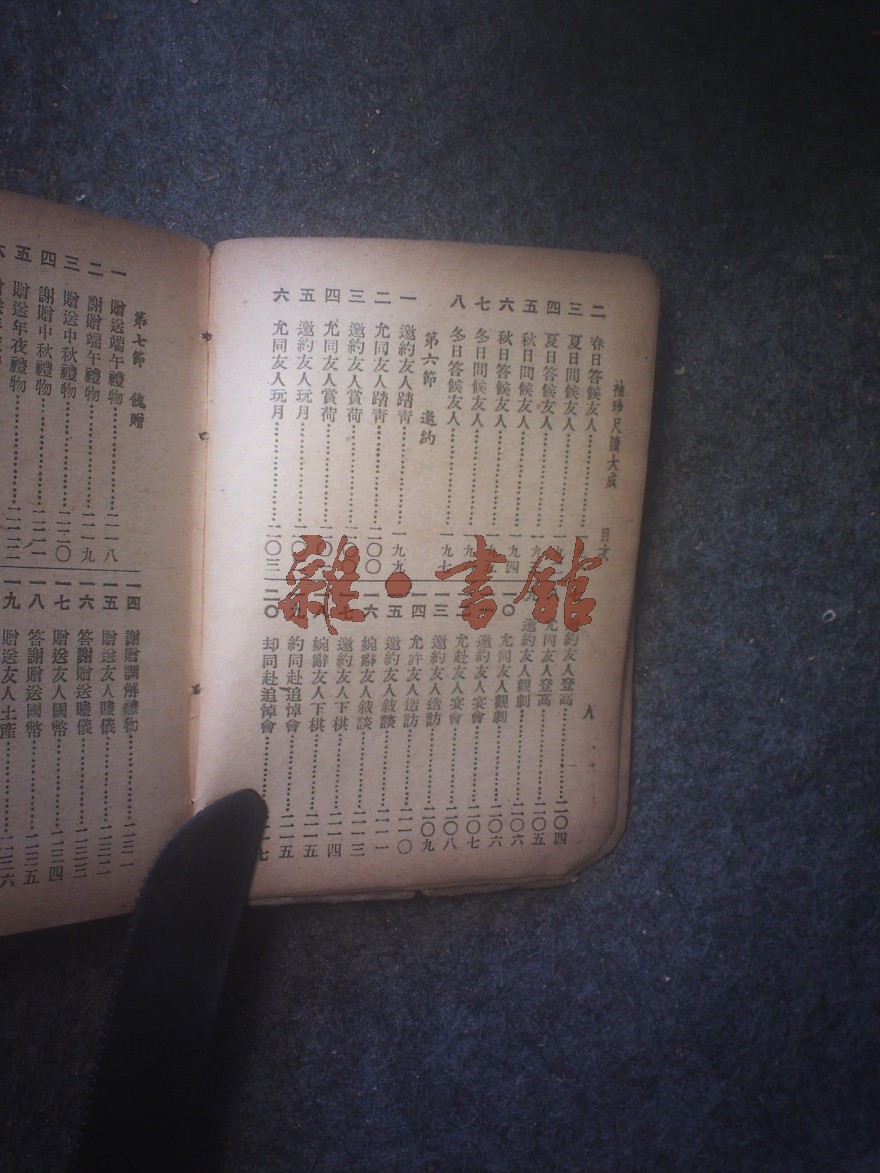 袖珍尺牘大成　目次　八
二　春日答候友人
三　夏日問候友人
四　夏日答候友人
五　秋日問候友人
六　秋日答候友人……一九四
七　冬日問候友人
八　冬日答候友人……一九七
第六節　邀約
一　邀約友人踏青……一九九
二　允同友人踏青……二〇〇
三　邀約友人賞荷
四　允同友人賞荷
五　邀約友人玩月
六　允同友人玩月……二〇三
約友人登高……二〇四
允同友人登高……二〇五
邀約友人觀劇……二〇六
一〇　允同友人觀劇……二〇六
邀約友人宴會……二〇七
允赴友人宴會……二〇八
邀約友人造訪……二〇九
一四　允許友人造訪……二一〇
一五　邀約友人敘談……二一一
一六　婉辭友人敘談……二一三
邀約友人下棋……二一四
婉辭友人下棋……二一五
約同赴追悼會……二一五
二〇　却同赴追悼會
雜·書館
第七節　餽贈
一　贈送端午禮物……二一八
二　謝贈端午禮物……二一九
三　贈送中秋禮物……二二〇
四　謝贈中秋禮物……二二一
五　贈送年夜禮物……二二二
六
一四　謝贈調解禮物……二三一
一五　贈送友人贐儀……二三二
一六　答謝贈送贐儀……二三三
一七　贈送友人國幣……二三四
一八　答謝贈送國幣……二三五
一九　贈送友人土產……二三六